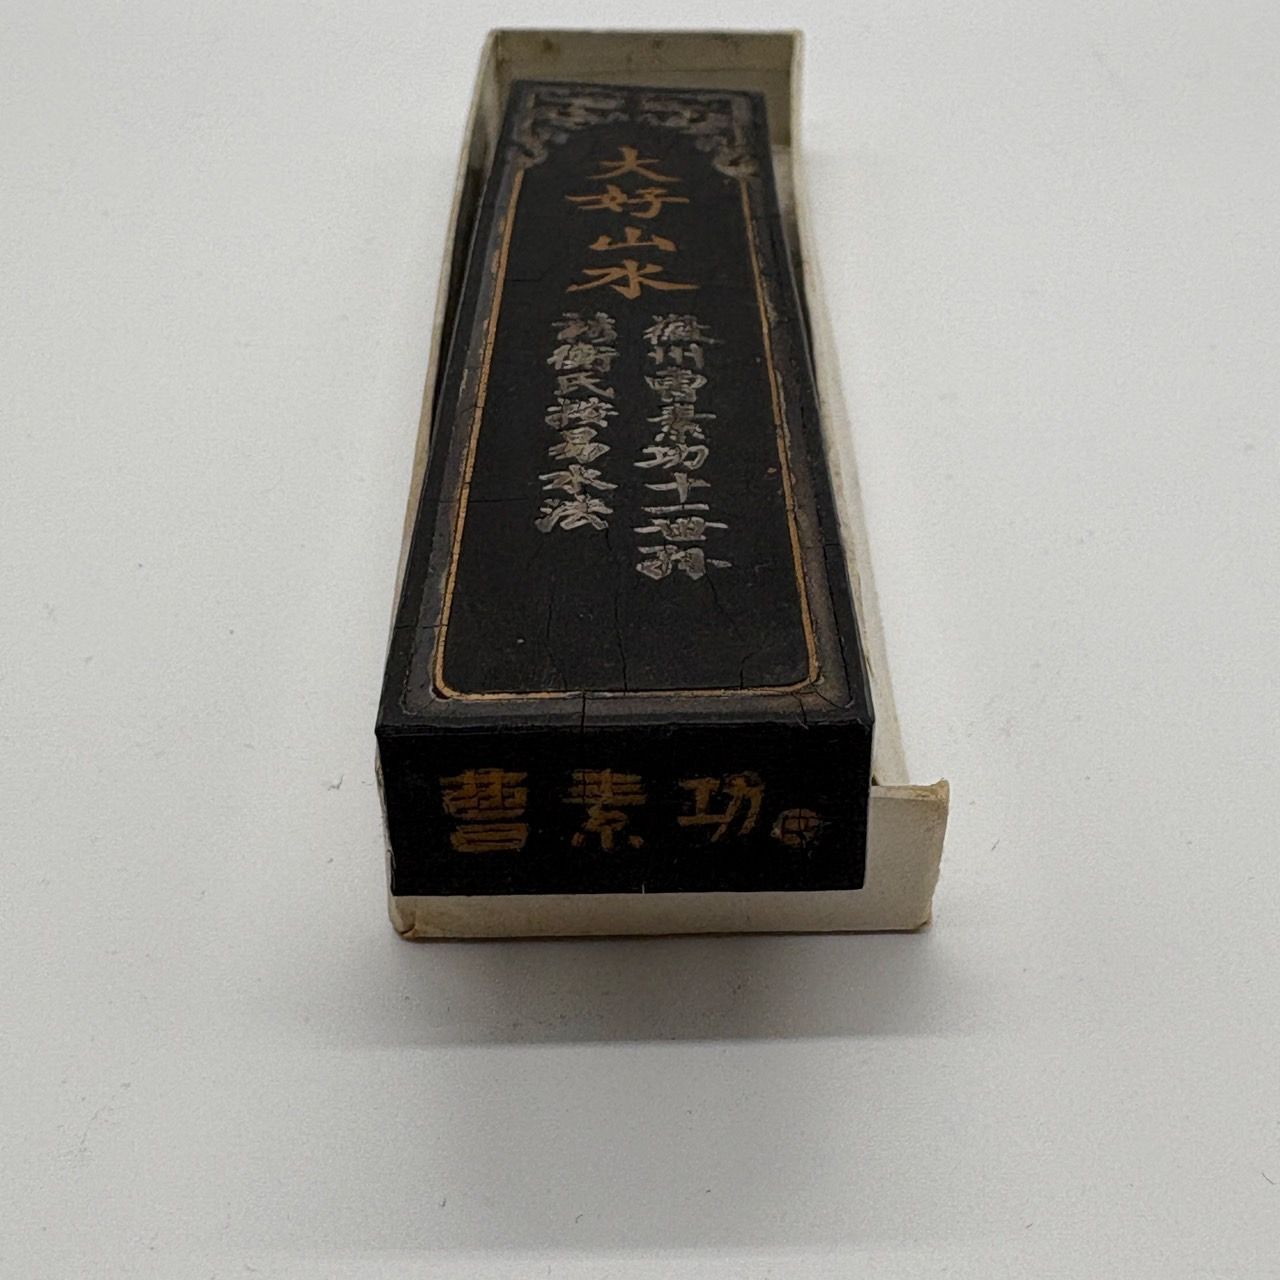 大好山水
徽州曹素功十一世孫
訪衡氏按易水法
曹素功